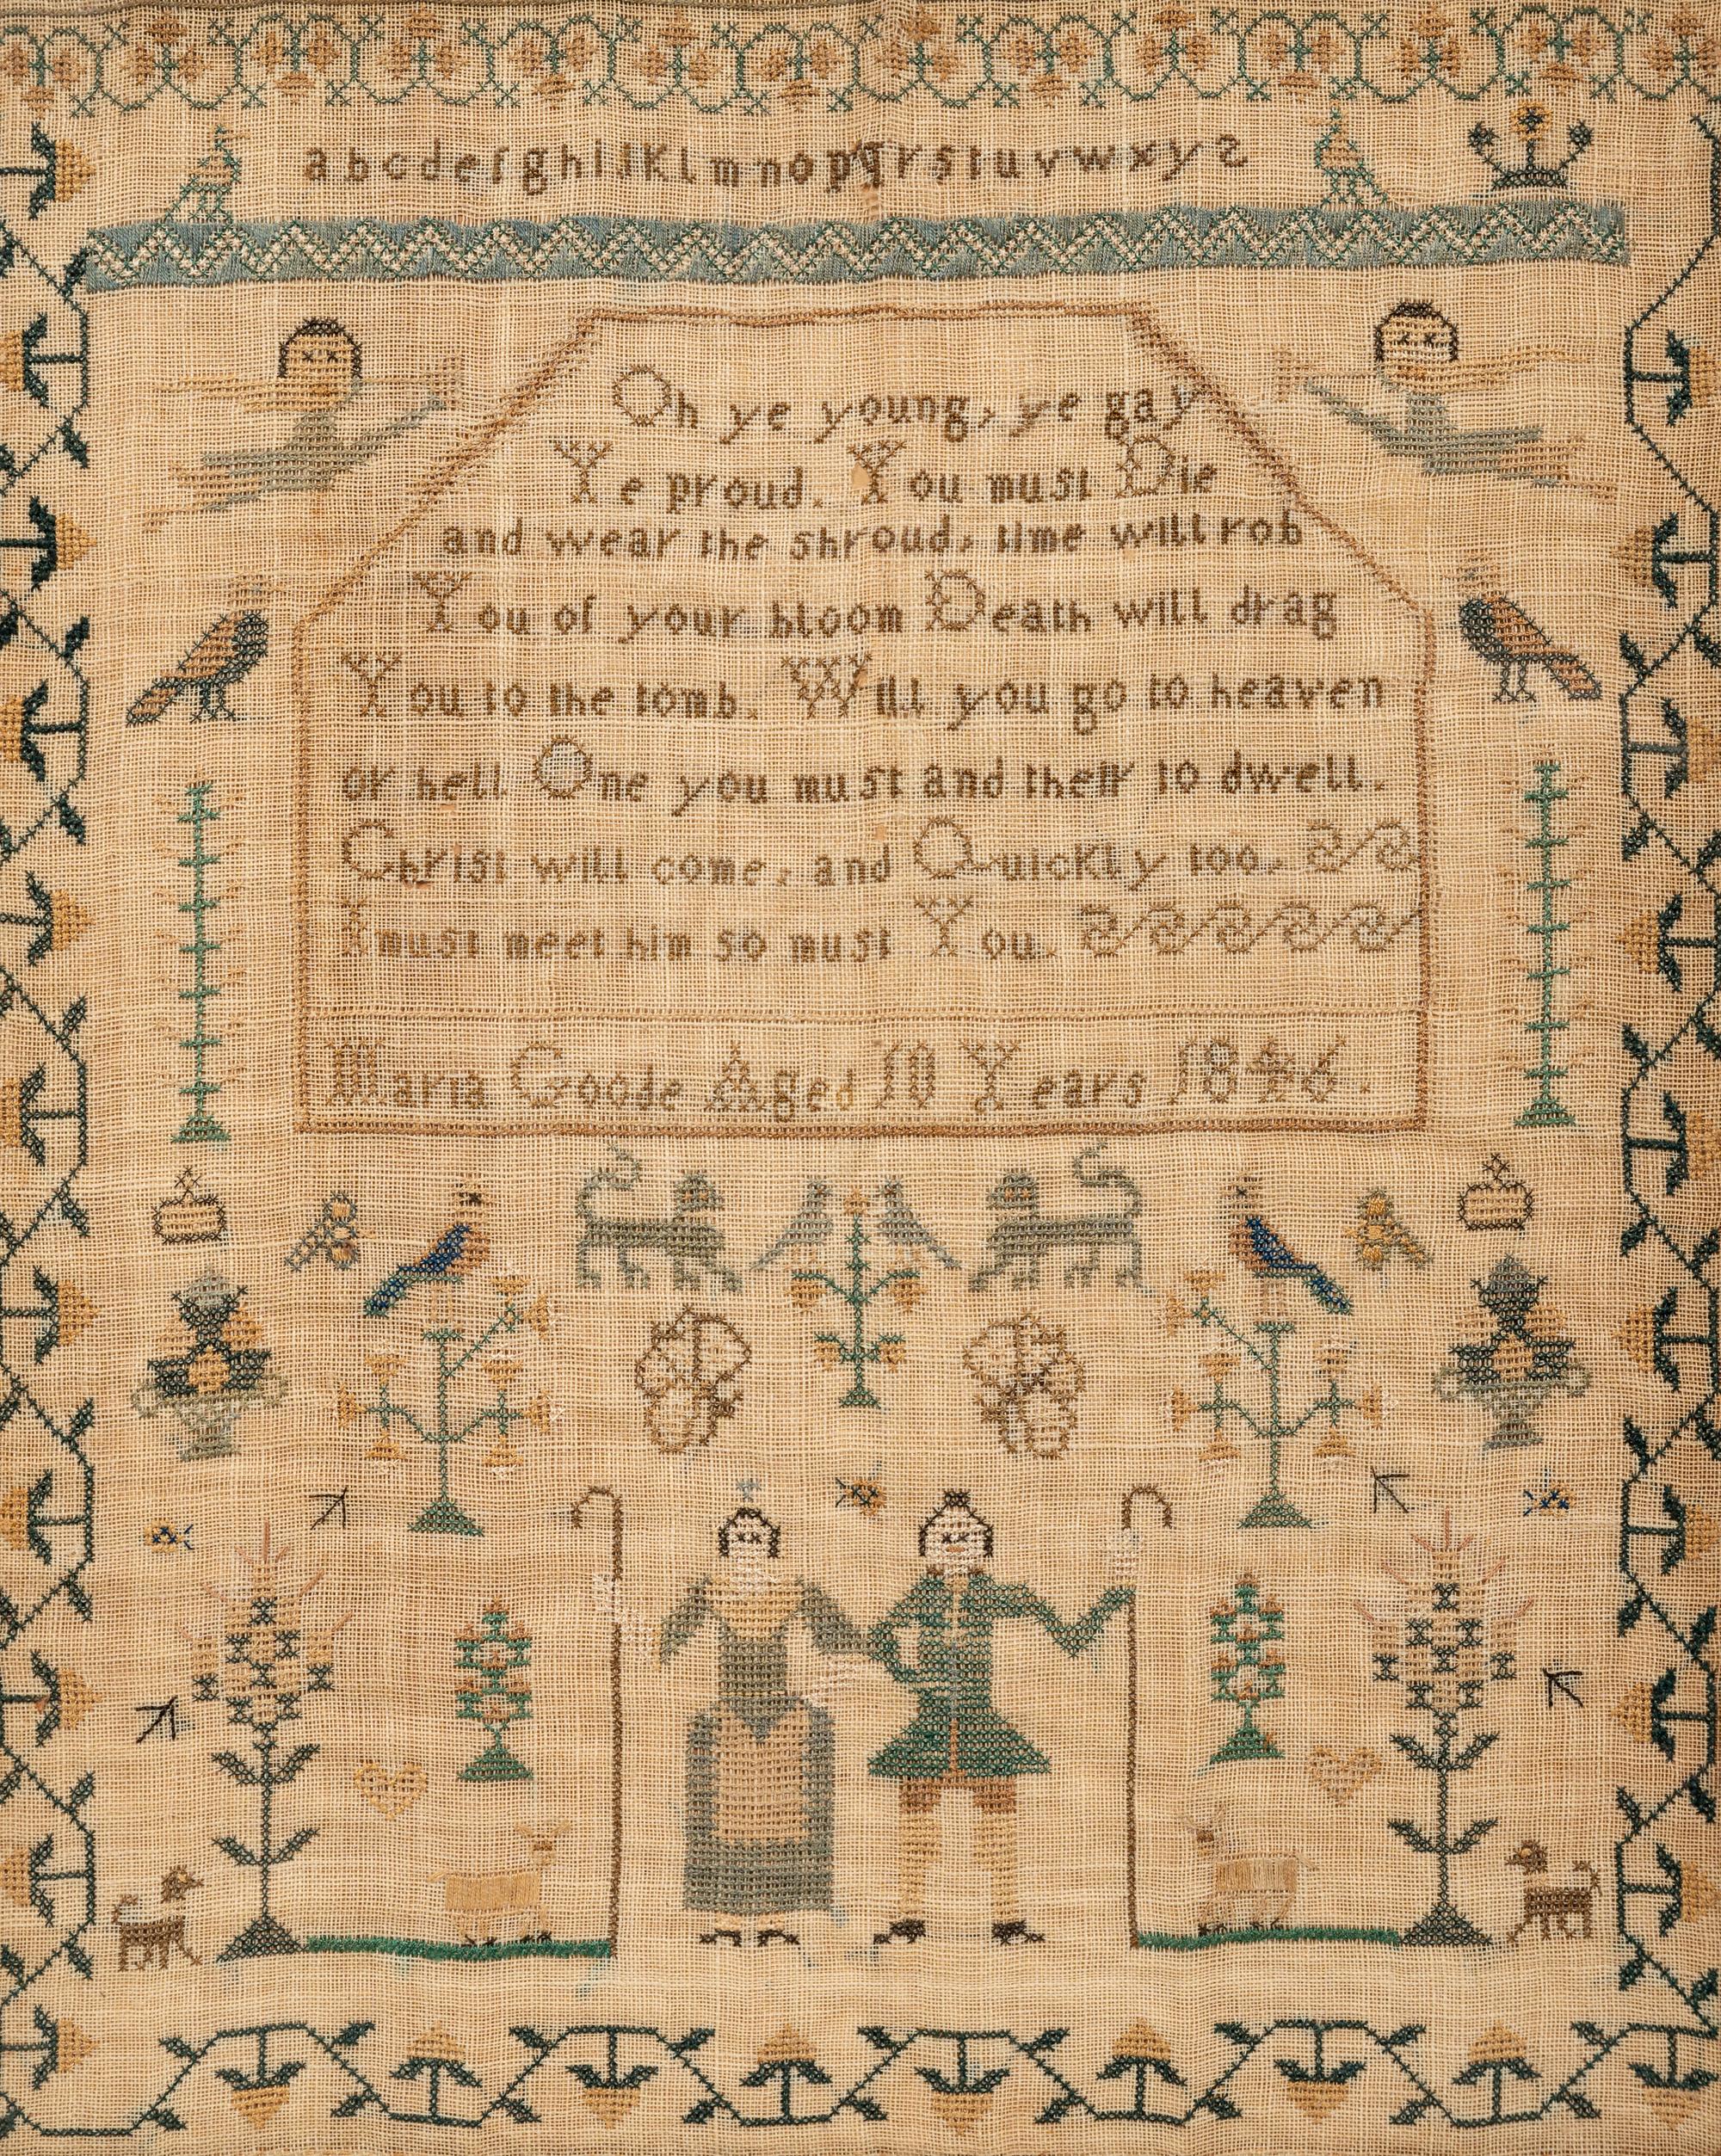 abcdefghijklmnopqrstuvwxyz
Oh ye young, ye gay
Ye proud. You must Die
and wear the shroud, time will rob
You of your bloom Death will drag
You to the tomb. Will you go to heaven
or hell One you must and their to dwell.
Christ will come, and Quickly too,
I must meet him so must You.
Maria Goode Aged 10 Years 1846.